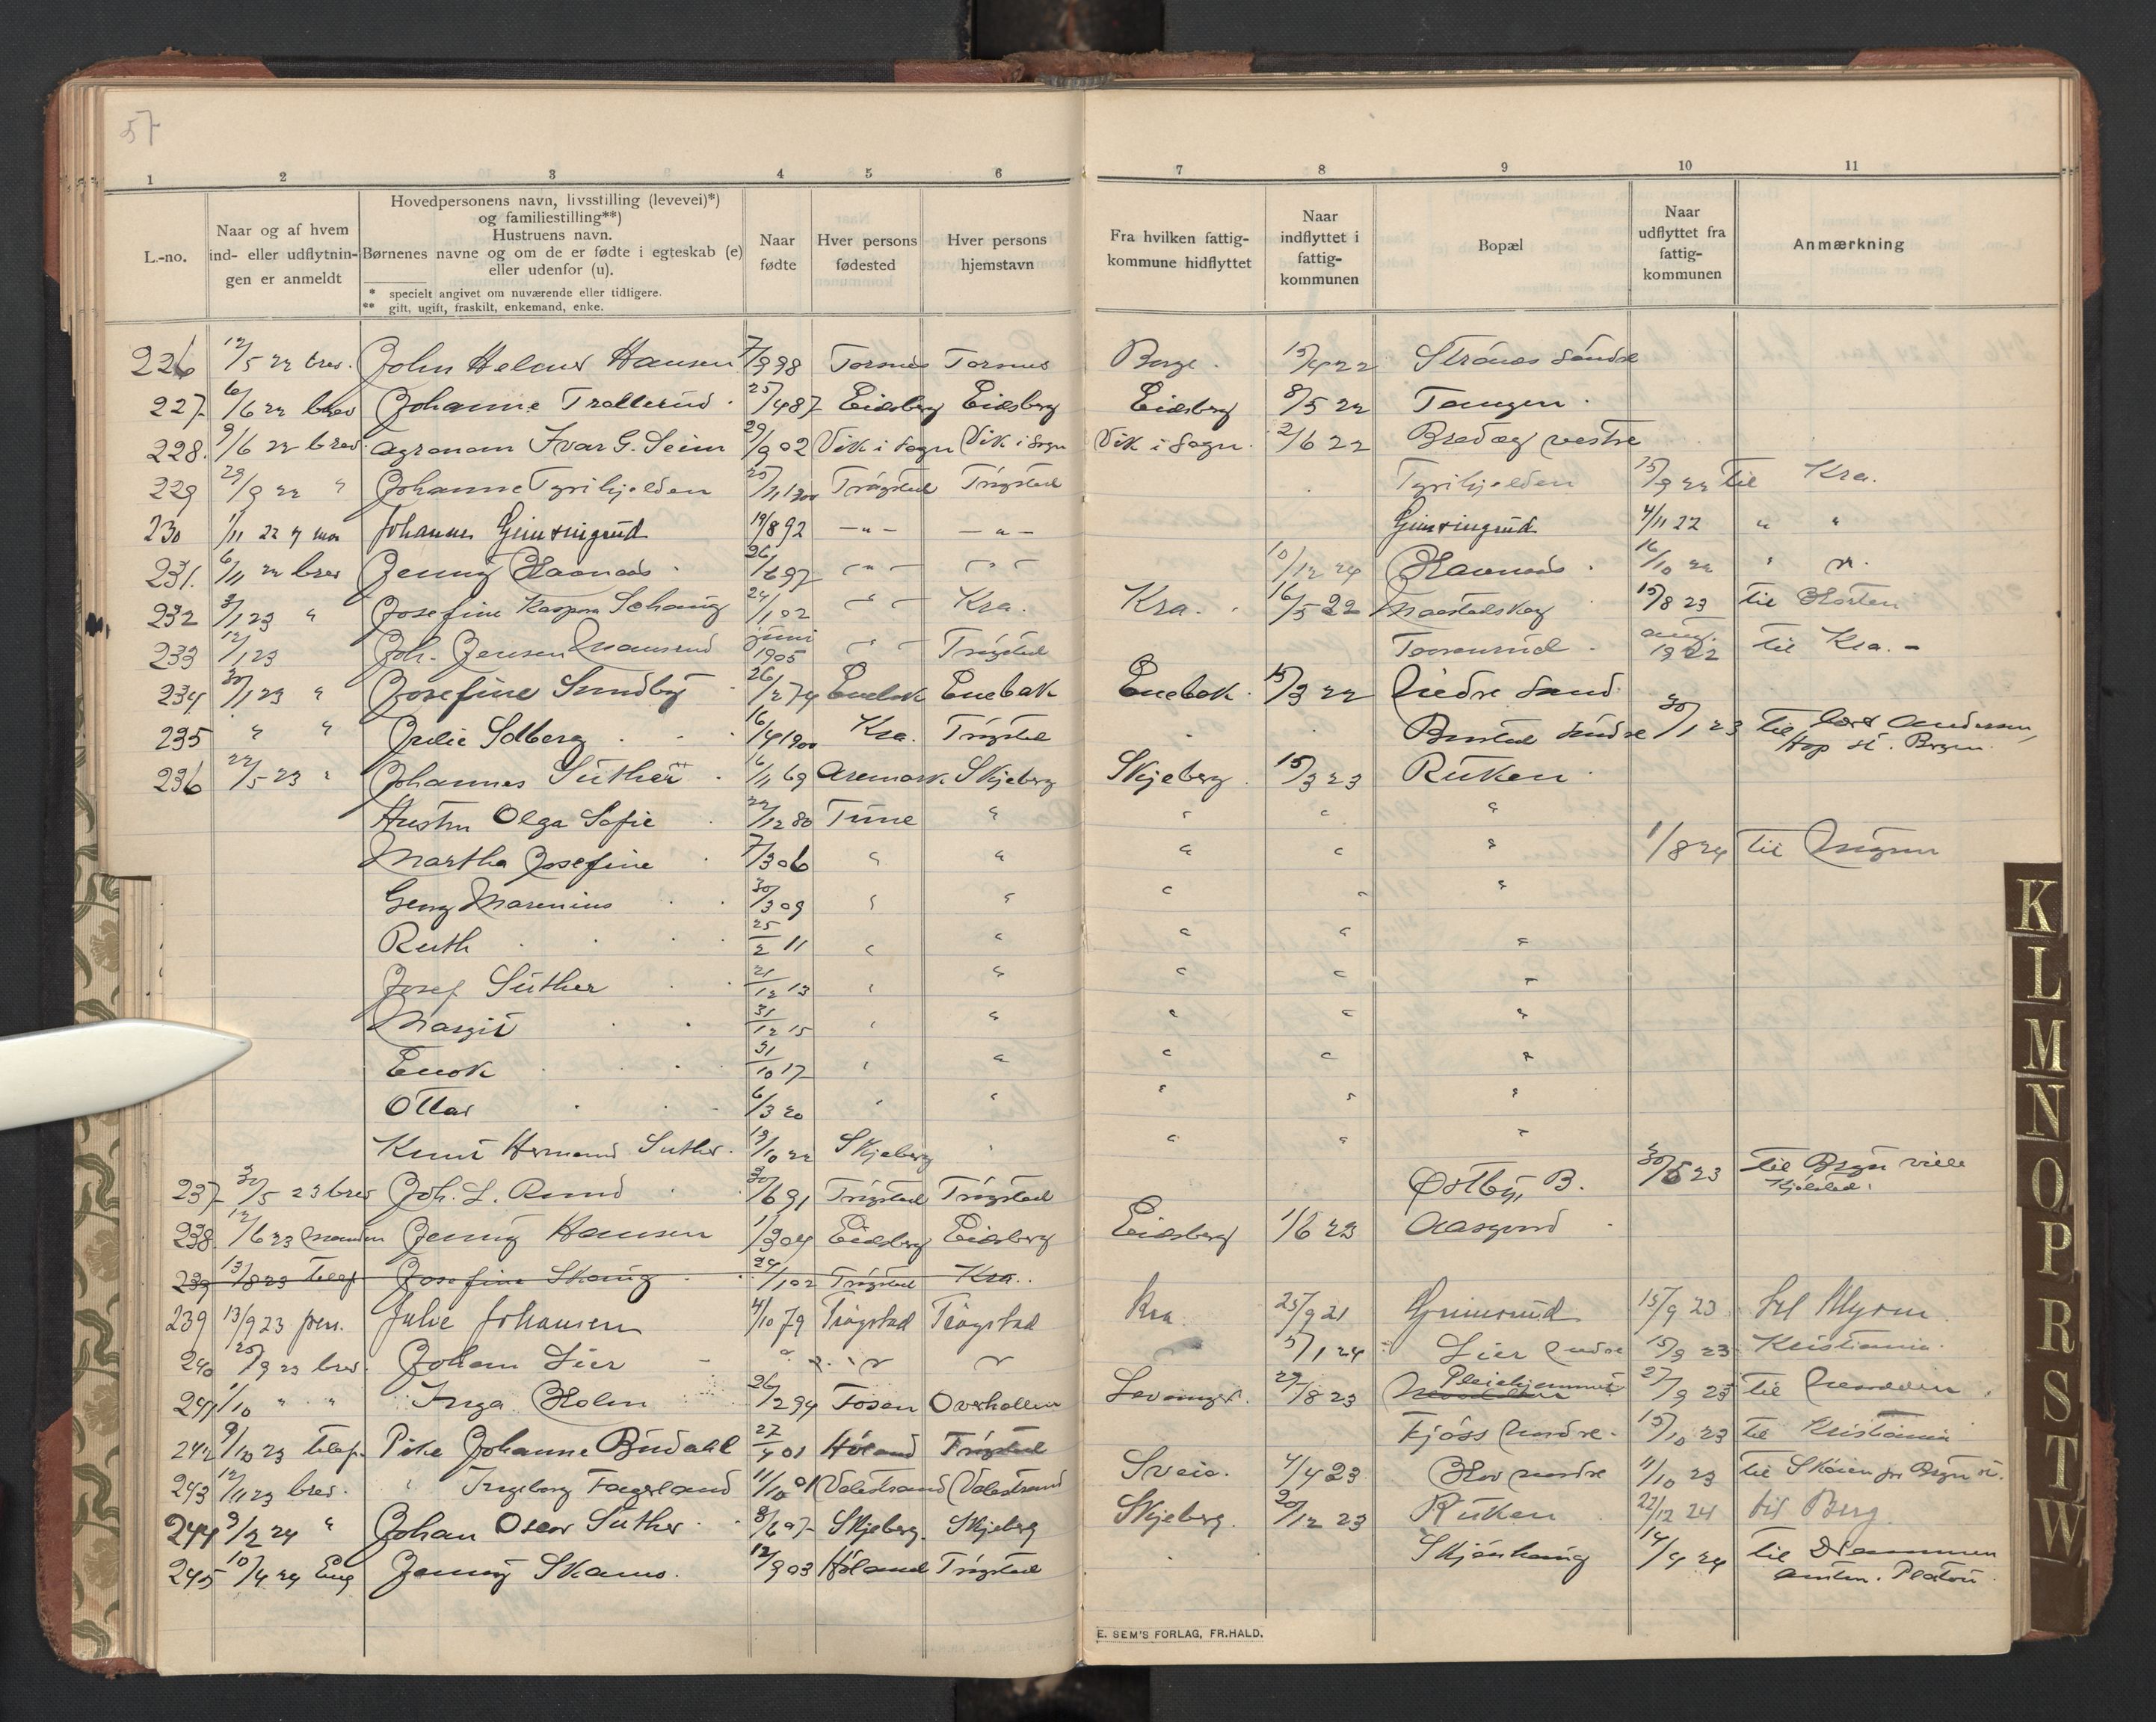 57
1 2 3 4 5 6 7 8 9 10 11
L.-no.
Naar og af hvem
ind- eller udflytnin-
gen er anmeldt
Hovedpersonens navn, livsstilling (levevei)*)
og familiestilling**)
Hustruens navn.
Børnenes navne og om de er fødte i egteskab (e)
eller udenfor (u).
* specielt angivet om nuværende eller tidligere.
** gift, ugift, fraskilt, enkemand, enke.
Naar
fødte
Hver persons
fødested
Hver persons
hjemstavn
Fra hvilken fattig-
kommune hidflyttet
Naar
indflyttet i
fattig-
kommunen
Bopæl
Naar
udflyttet fra
fattig-
kommunen
Anmærkning
226 12/5 22 brev. John Helmer Hansen 7/9 98 Torsnes Torsnes Borge. 15/4 22 Strønes søndre
227 6/6 22 brev Johanne Trollerud. 25/4 87 Eidsberg Eidsberg Eidsberg 8/5 22 Tangen.
228. 9/6 22 brev. agronom Ivar G. Seim 29/9 02 Vik i Sogn Vik i Sogn Vik i Sogn. 2/6 22 vestre
229 29/9 22 " Johanne Tyrihjelden 25/11 1900 Trøgstad Trøgstad Tyrihjelden 15/9 22 til Kra.
230 1/11 22 Johannes 19/8 92 —"— —"— 4/11 22 " "
231. 6/11 22 brev Jenny Havnaas. 26/6 97 —"— —"— 10/12 24 Havnaas. 16/10 22 " "
232 3/1 23 " Josefine Kaspara Schaug 24/1 02 —"— Kra. Kra. 16/5 22 15/8 23 til Horten
233 12/1 23 Joh. Jensen juni 1905 —"— Trøgstad aug. 1922 til Kra. –
234 30/1 23 " Josefine Sundby 26/2 74 Enebak Enebak Enebak. 15/3 22 Nedre Sand
235 " " Julie Solberg 16/4 1900 Kra. Trøgstad søndre 30/1 23 til Andersen,
Hop st. Bryn.
236 22/5 23 " Johannes Süther 16/11 69 Aremark Skjeberg Skjeberg. 15/3 23 Ruken.
Hustru Olga Sofie 22/12 80 Tune " " " "
Martha Josefine 7/3 06 " " " " " 1/8 24 til
Georg Marenius 30/3 09 " " " " "
Ruth 25/2 11 " " " " "
Josef Süther 21/12 13 " " " " "
Margit 31/12 15 " " " " "
Enok 31/10 17 " " " " "
Ottar 6/3 20 " " " " "
Knut Hermann Suther. 19/10 22 Skjeberg " " " "
237 30/5 23 brev Joh. L. Rund 30/6 91 Trøgstad Trøgstad Østby, B. 30/5 23 til Bryn
238. 12/6 23 Jenny Hansen 1/9 04 Eidsberg Eidsberg Eidsberg 1/6 23 Aasgaard
239 13/8 23 telef. Josefine Skaug 24/1 02 Trøgstad Kra.
239 13/9 23 pers. Julie Johansen 4/10 79 Trøgstad Trøgstad Kra 25/9 21 Grimsrud 15/9 23 til Mysen
240 25/9 23 brev. Johan Lier " " " 5/1 24 Lier nedre 15/9 23 Kristiania.
241 1/10 " " Inga Holm 26/2 94 Fosen Overhallen Levanger. 29/8 23 Pleiehjemmet 27/9 23 til
242 9/10 23 telef. Pike Johanne Budahl 27/4 01 Høland Trøgstad Fjøss nordre. 15/10 23 til Kristiania
243 12/11 23 brev. " Ingeborg Fagerland 11/10 01 Valestrand Valestrand Sveio. 4/4 23 Hov nordre 11/10 23 til Skøien pr Bryn st.
244 9/2 24 " Johan Oscar Suther. 8/6 07 Skjeberg. Skjeberg Skjeberg. 20/12 23 Ruken 22/12 24 til Berg.
245 10/4 24 Eng Jenny Skamo. 12/9 03 Høland Trøgstad Skjønhaug 14/4 24 til Drammen
E. SEM'S FORLAG, FR.HALD.
K
L
M
N
O
P
R
S
T
W